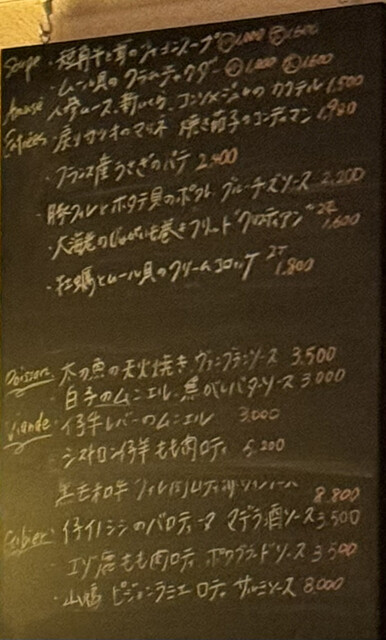 Soupe ・短角牛と茸のコンソメスープ ㊥1,000 ㊅1,600
・ムール貝のクラムチャウダー 1,000 1,600
Amuse 人参ムース、新いくら、コンソメジュレのカクテル 1,500
Entrées ・戻りカツオのマリネ 焼き茄子のコンディマン 1,980
・フランス産うさぎのパテ 2,400
・豚フィレとホタテ貝のポワレ ブルーチーズソース 2,200
・大海老のじゃがいも巻きフリット 2P 1,600
・牡蠣とムール貝のクリームコロッケ 2P 1,800
Poisson ・本日の魚の天火焼き ヴァンブランソース 3,500
・白子のムニエル 焦がしバターソース 3,000
Viande ・仔牛レバーのムニエル 3,000
・シストロン仔羊もも肉ロティ 5,200
・黒毛和牛フィレ肉 8,800
Gibier ・仔イノシシのバロティーヌ マデラ酒ソース 3,500
・エゾ鹿もも肉ロティ ポワヴラードソース 3,500
・山鳩 ピジョンラミエ ロティ サルミソース 8,000